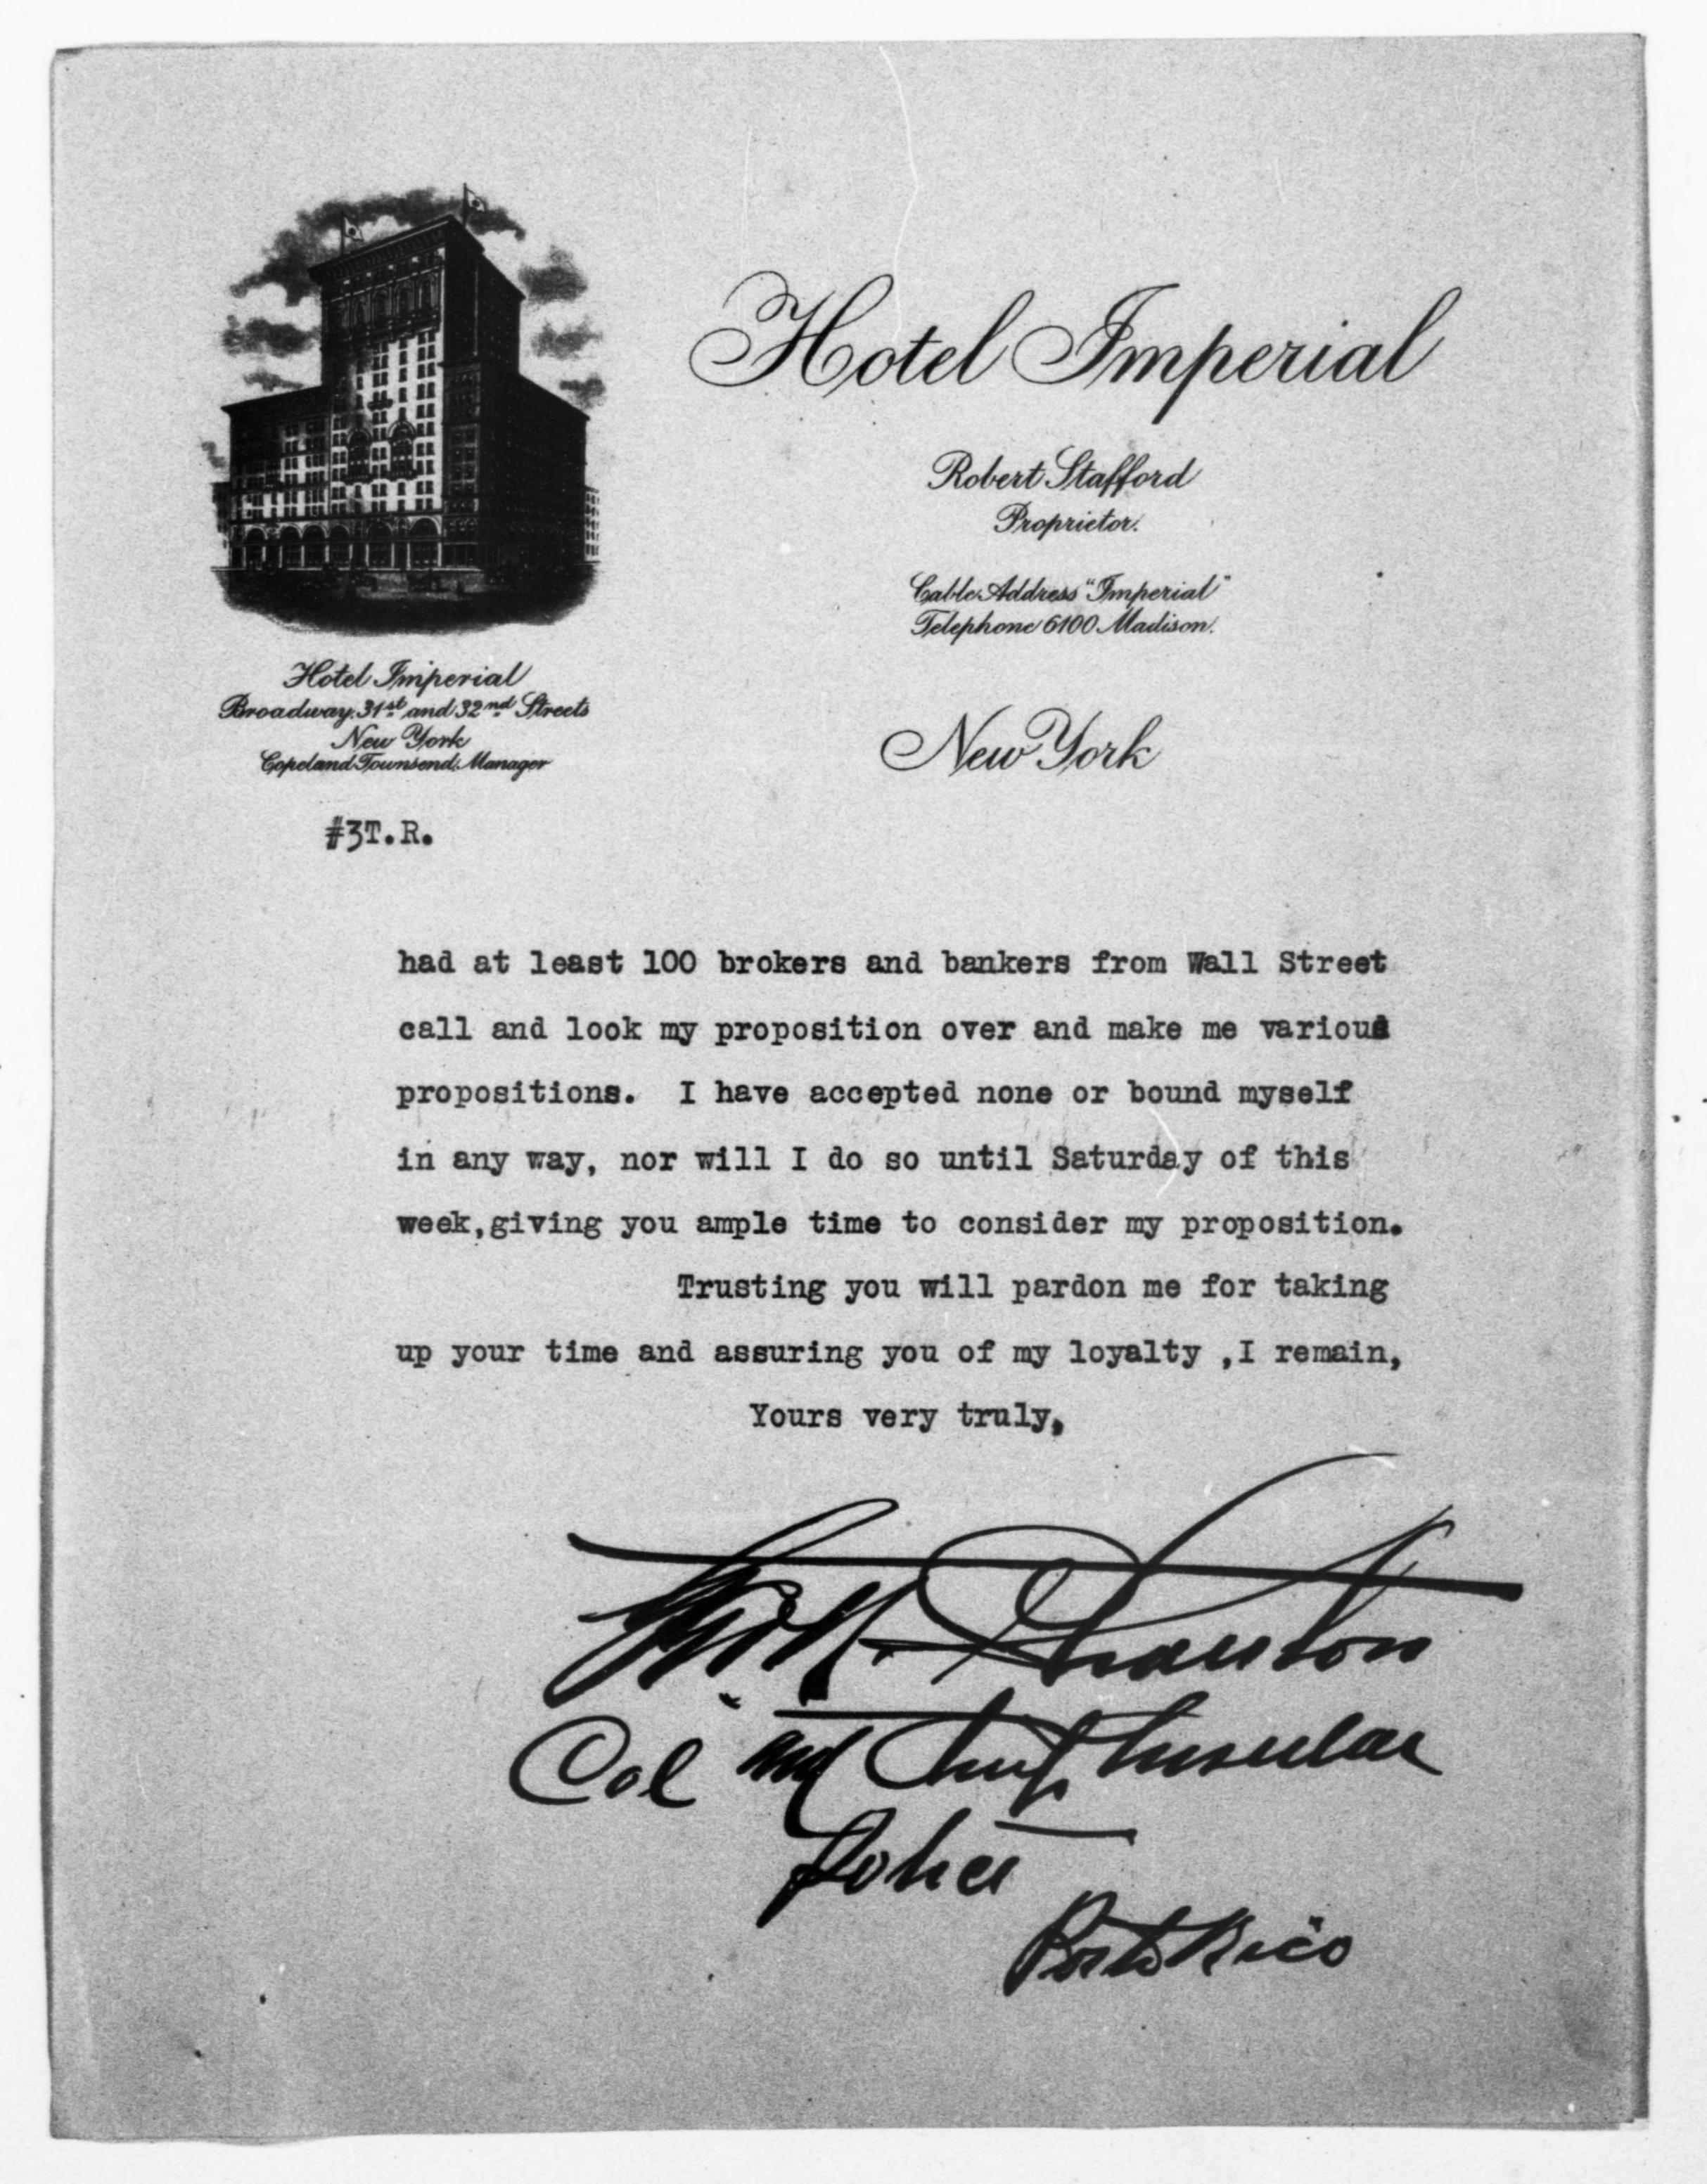 Hotel Imperial
Robert Stafford
Proprietor.
Cable Address "Imperial"
Telephone 6100 Madison.
New York
Hotel Imperial
Broadway, 31st and 32nd Streets
New York
Copeland Townsend, Manager
#3T.R.
had at least 100 brokers and bankers from Wall Street
call and look my proposition over and make me various
propositions. I have accepted none or bound myself
in any way, nor will I do so until Saturday of this
week,giving you ample time to consider my proposition.
Trusting you will pardon me for taking
up your time and assuring you of my loyalty ,I remain,
Yours very truly,
Col and Chief Insular
Police
Porto Rico